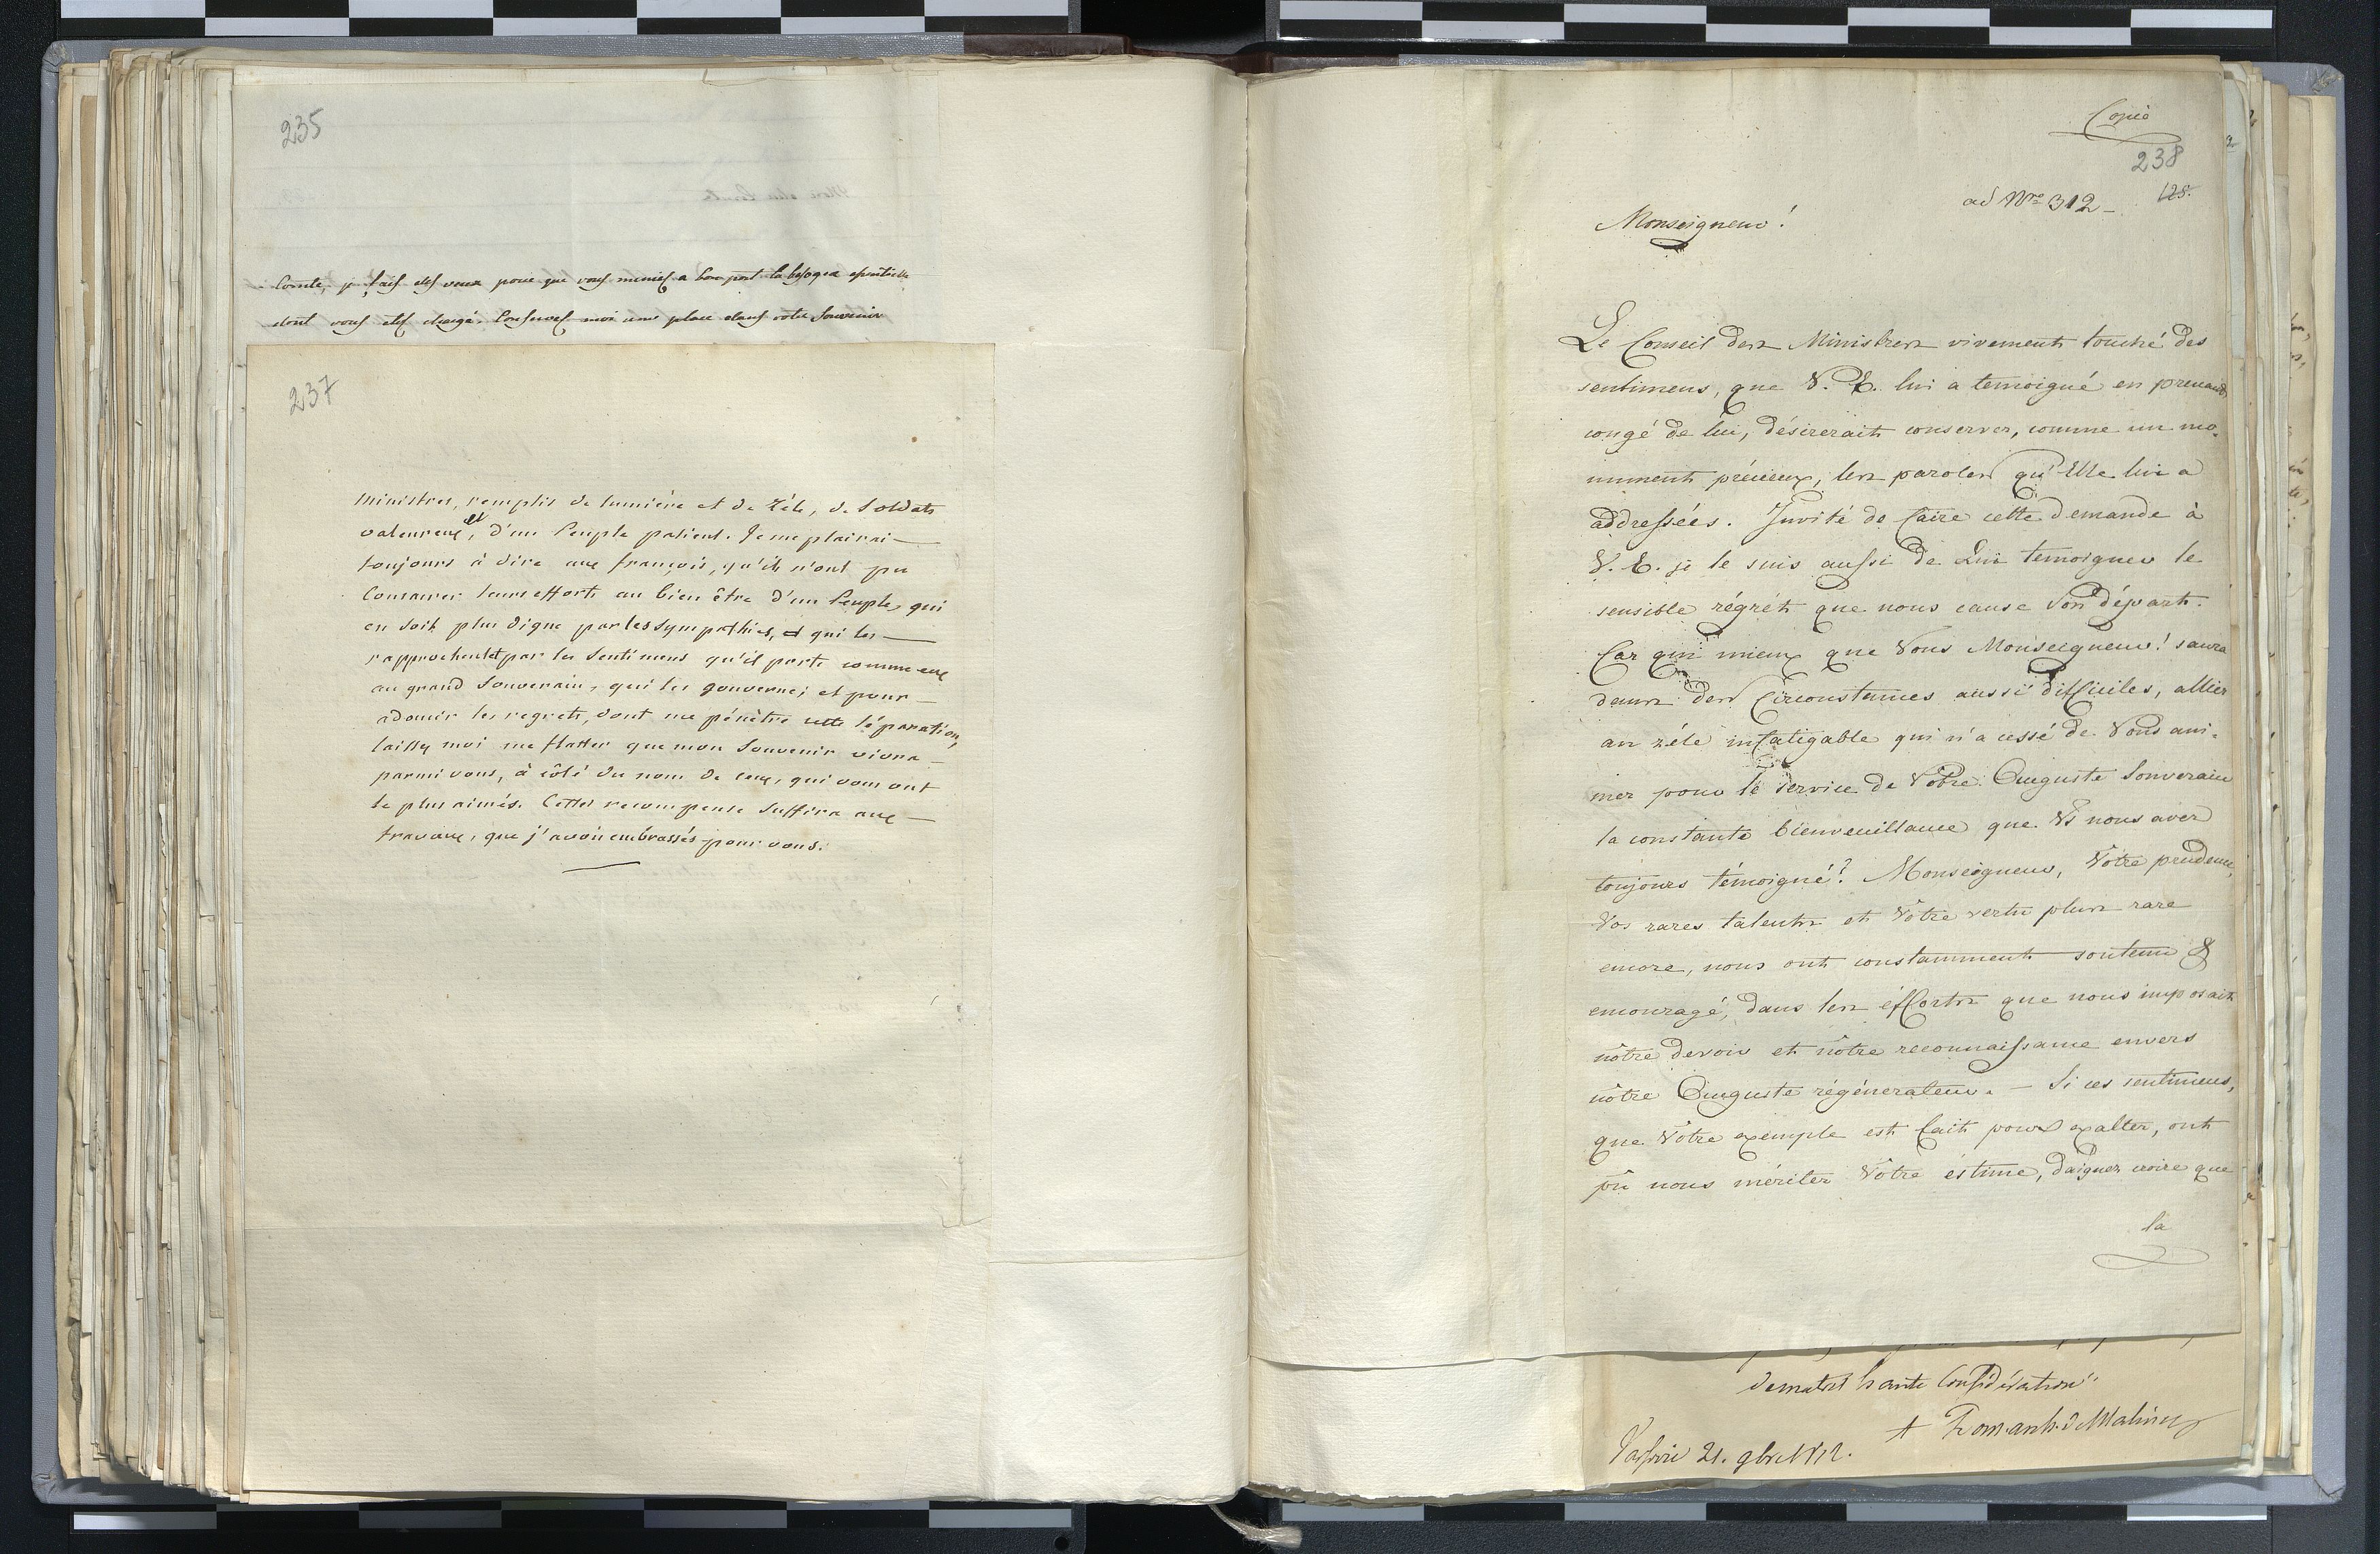 235
Comte, je fais des veux pour que vous meniez a bon port la besogne
dont vous etes chargé. Conservez moi une place dans votre Souvenir
237
Ministres, remplis de lumière et de zéle, de Soldats
valeureux, et d'un Peuple patient. Je me plairai
toujours à dire aux françois, qu'ils n'ont pu
Consacrer leurs efforts au bien être d'un Peuple, qui
en soit plus digne par les sympathies, et qui les
rapprochent et par les Sentimens qu'il porte comme eux
au grand Souverain, qui les gouverne; et pour
adoucir les regrets, dont me pénètre cette séparation,
laissez moi me flatter que mon Souvenir vivra
parmi vous, à côté du nom de ceux, qui vous ont
le plus aimés. Cette recompense suffira aux
travaux, que j'avois embrassés pour vous.
Copie
238
ad Nro 312 128.
Monseigneur!
Le Conseil des Ministres vivement touché des
sentimens, que V. E. lui a temoigné en prenant
congé de lui, désirerait conserver, comme un mo-
nument précieux, les paroles qu'Elle lui a
addressées. Invité de faire cette demande à
V. E. je le suis aussi de Lui temoigner le
sensible régrét que nous cause Son départ.
Car qui mieux que Vous Monseigneur! saura
dans des Circonstances aussi difficiles, allier
au zéle infatigable qui n'a cessé de Vous ani-
mer pour le service de Votre Auguste Souverain
la constante bienveuillance que Vs nous avez
toujours témoigné? Monseigneur, Vôtre prudence,
Vos rares talents et Vôtre vertu plus rare
encore, nous ont constamment soutenu &
encouragé, dans les éfforts que nous imposait
nôtre devoir et nôtre reconnaissance envers
nôtre Auguste régénerateur. – Si ces sentimens,
que Vôtre exemple est fait pour exalter, ont
pû nous mériter Vôtre éstime, daignez croire que
la
de ma très haute Considération
+ F. de Malines
Varsovie 21. 9bre 1812.